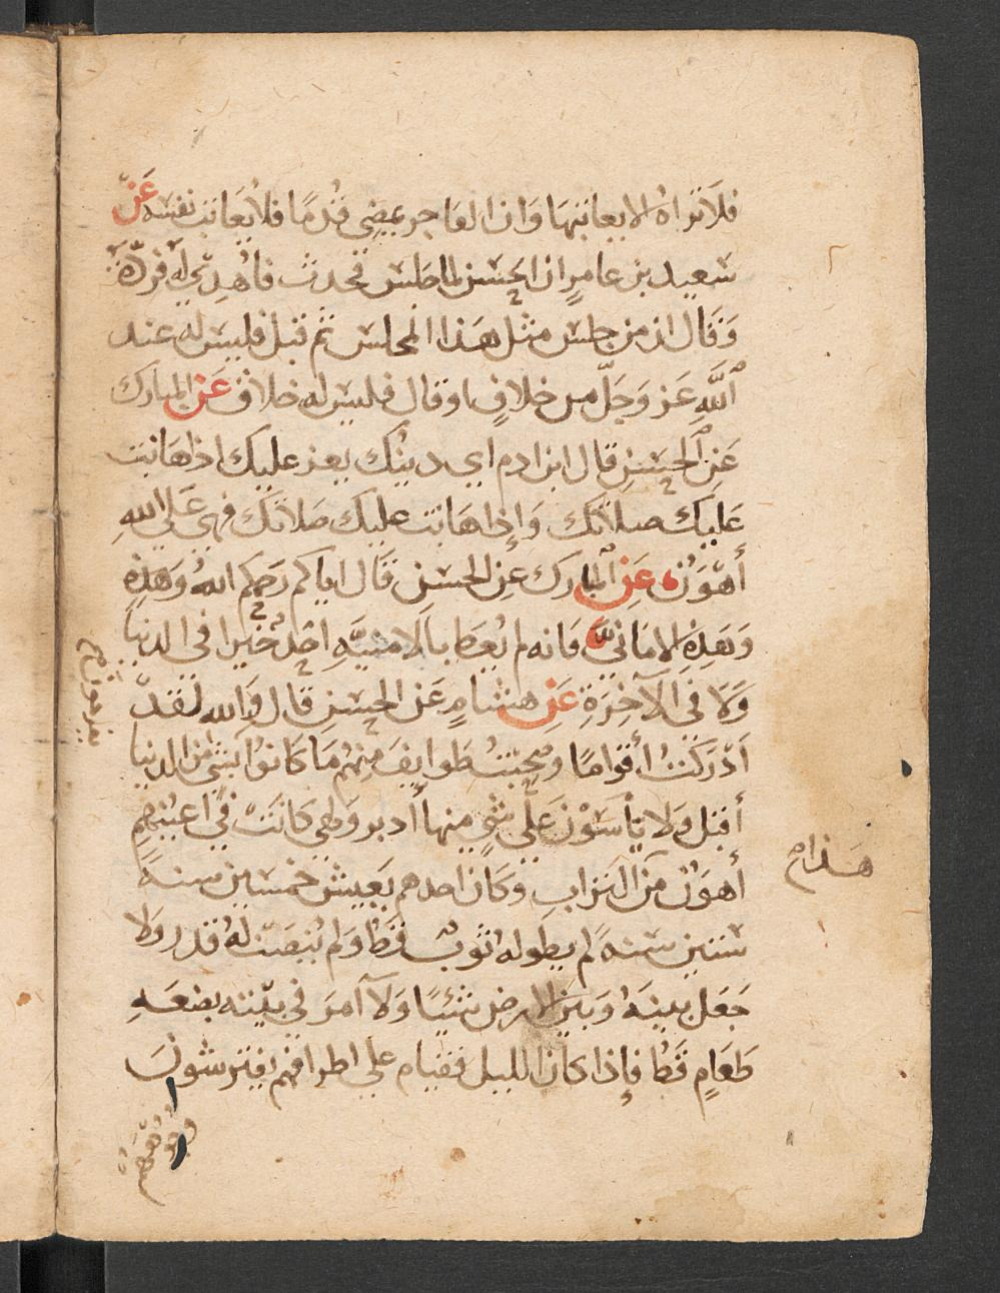 فلا تراه الا يعاتبها وان الفاجر يمضي قدما فلا يعاتب نفسه عن
سعيد بن عامر ان الحسن لما جلس تحدث فاهدي له فرده
وقال ان من جلس مثل هذا المجلس ثم قبل فليس له عند
الله عز وجل من خلاف او قال فليس له خلاق عن المبارك
عن الحسن قال ابن ادم اي دينك يعز عليك اذا هانت
عليك صلاتك وإذا هانت عليك صلاتك فهي على الله
أهون عن المبارك عن الحسن قال اياكم رحمكم الله وهذه
وهذه الاماني فانه لم يعطا بالامنية احد خيرا في الدنيا
ولا في الآخرة عن هشام عن الحسن قال والله لقد
ادركت أقواما وصحبت طوايف منهم ما كانوا بشي من الدنيا
أقبل ولا يأسون على شي منها أدبر ولهي كانت في اعينهم
أهون من التراب وكان احدهم يعيش خمسين سنة
ستين سنة لم يطو له ثوب قط ولم ينصب له قدر ولا
جعل بينه وبين الارض شئيا ولا آمر في بيته بصنعه
طعام قط فإذا كان الليل فقيام على اطرافهم يفترشون
وجوههم
يفرحون صح
هذا م